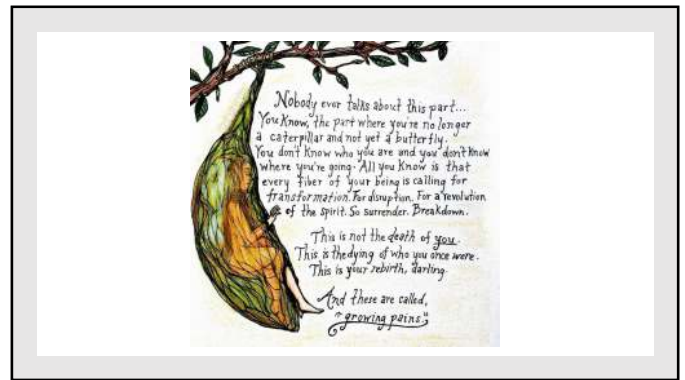 Nobody ever talks about this part...
You Know, the part where you're no longer
a caterpillar and not yet a butterfly.
You don't know who you are and you don't know
where you're going. All you know is that
every fiber of your being is calling for
transformation. For disruption. For a revolution
of the spirit. So surrender. Breakdown.
This is not the death of you.
This is the dying of who you once were.
This is your rebirth, darling.
And these are called,
"growing pains"